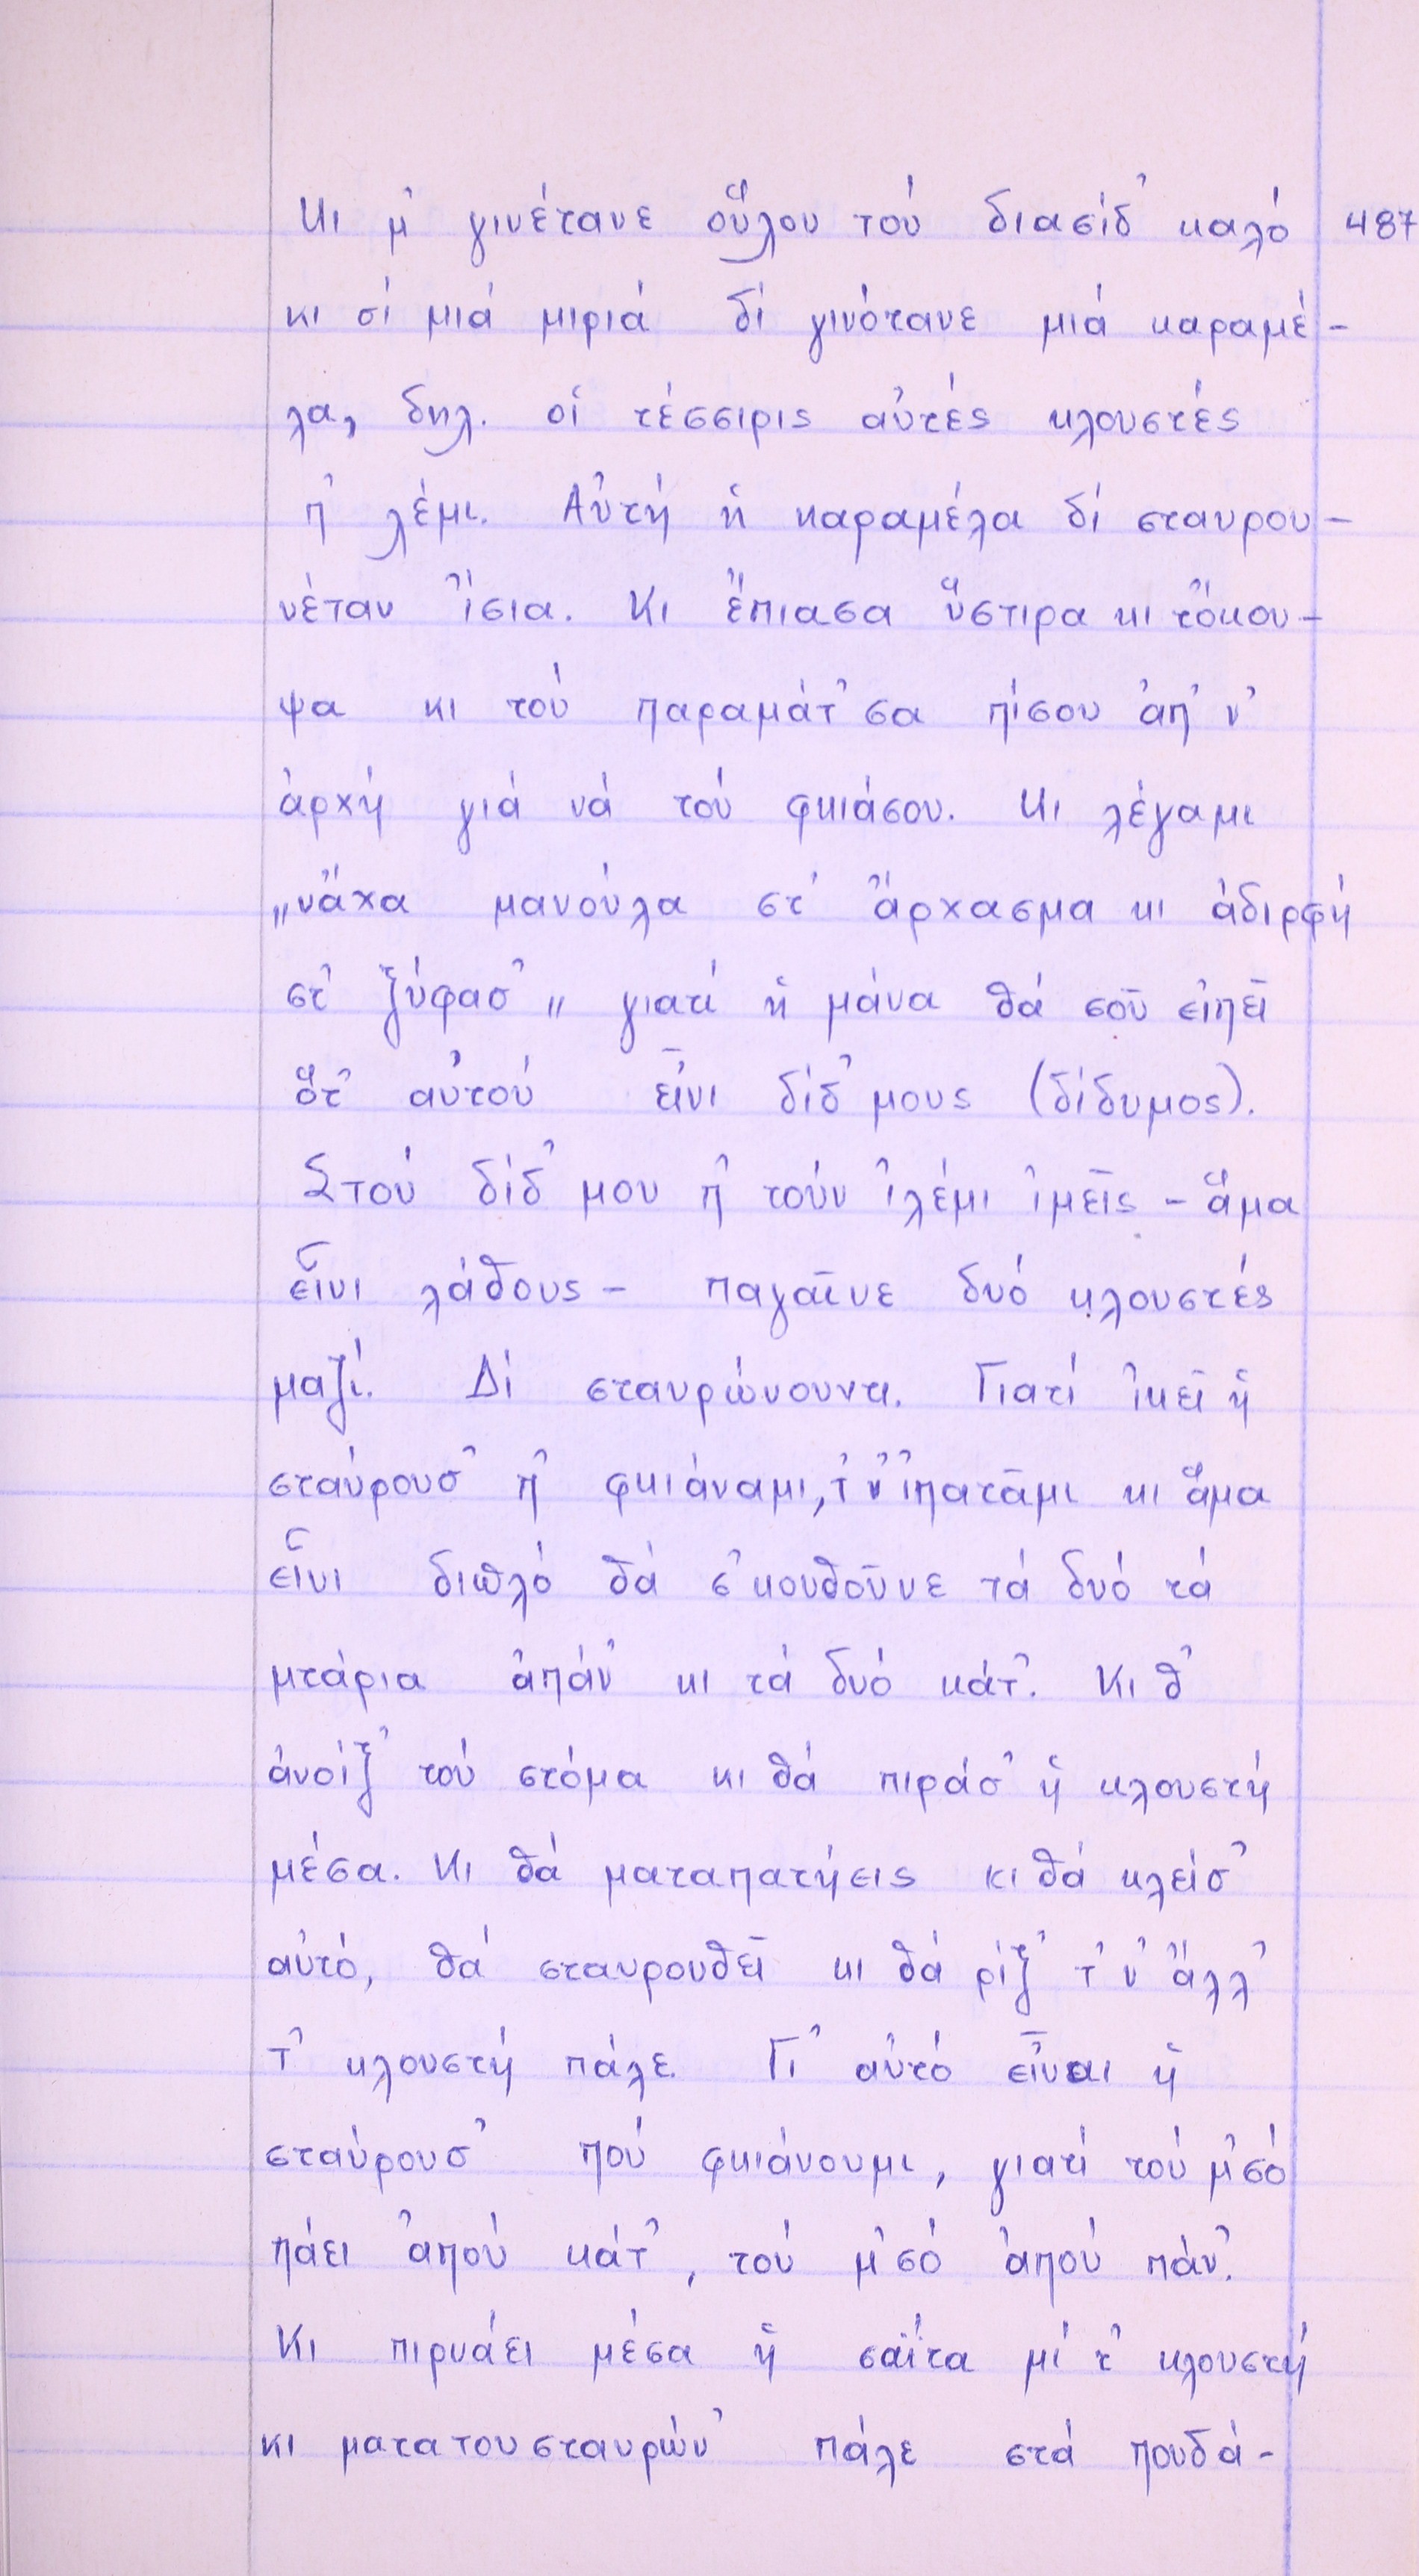 Κι μ' γινέτανε οὕλου τού διασίδ' καλό 487
κι σί μιά μιριά δί γινότανε μιά καραμέ-
λα, δηλ. οἱ τέσσιρις αὐτές κλουστές
π' λέμι. Αὐτή ἡ καραμέλα δί σταυρου-
νέταν ἴσια. Κι ἔπιασα ὕστιρα κι τὄκου-
ψα κι τού παραμάτ'σα πίσου ἀπ' ν'
ἀρχή γιά νά τού φκιάσου. Κι λέγαμι
„νἄχα μανούλα στ' ἄρχασμα κι ἀδιρφή
στ' ξύφασ'„ γιατί ἡ μάνα θά σοῦ εἰπεῖ
ὅτ' αὐτού εἶνι δίδ'μους (δίδυμος).
Στού δίδ'μου π' τούν ἰλέμι ἰμεῖς - ἅμα
εἶνι λάθους - παγαῖνε δυό κλουστές
μαζί. Δί σταυρώνουντι. Γιατί ἰκεῖ ἡ
σταύρουσ' π' φκιάναμι, τ' ν' ἰπατᾶμι κι ἅμα
εἶνι διπλό θά σ'κουθοῦνε τά δυό τά
μτάρια ἀπάν' κι τά δυό κάτ'. Κι θ'
ἀνοίξ' τού στόμα κι θά πιράσ' ἡ κλουστή
μέσα. Κι θά ματαπατήεις κι θά κλείσ'
αὐτό, θά σταυρουθεῖ κι θά ρίξ' τ' ν' ἄλλ'
τ' κλουστή πάλε. Γι' αὐτό εἶναι ἡ
σταύρουσ' πού φκιάνουμι, γιατί τού μ'σό
πάει ἀπού κάτ', τού μ'σό ἀπού πάν'.
Κι πιρνάει μέσα ἡ σαΐτα μί τ' κλουστή
κι ματα του σταυρών' πάλε στά πουδά-